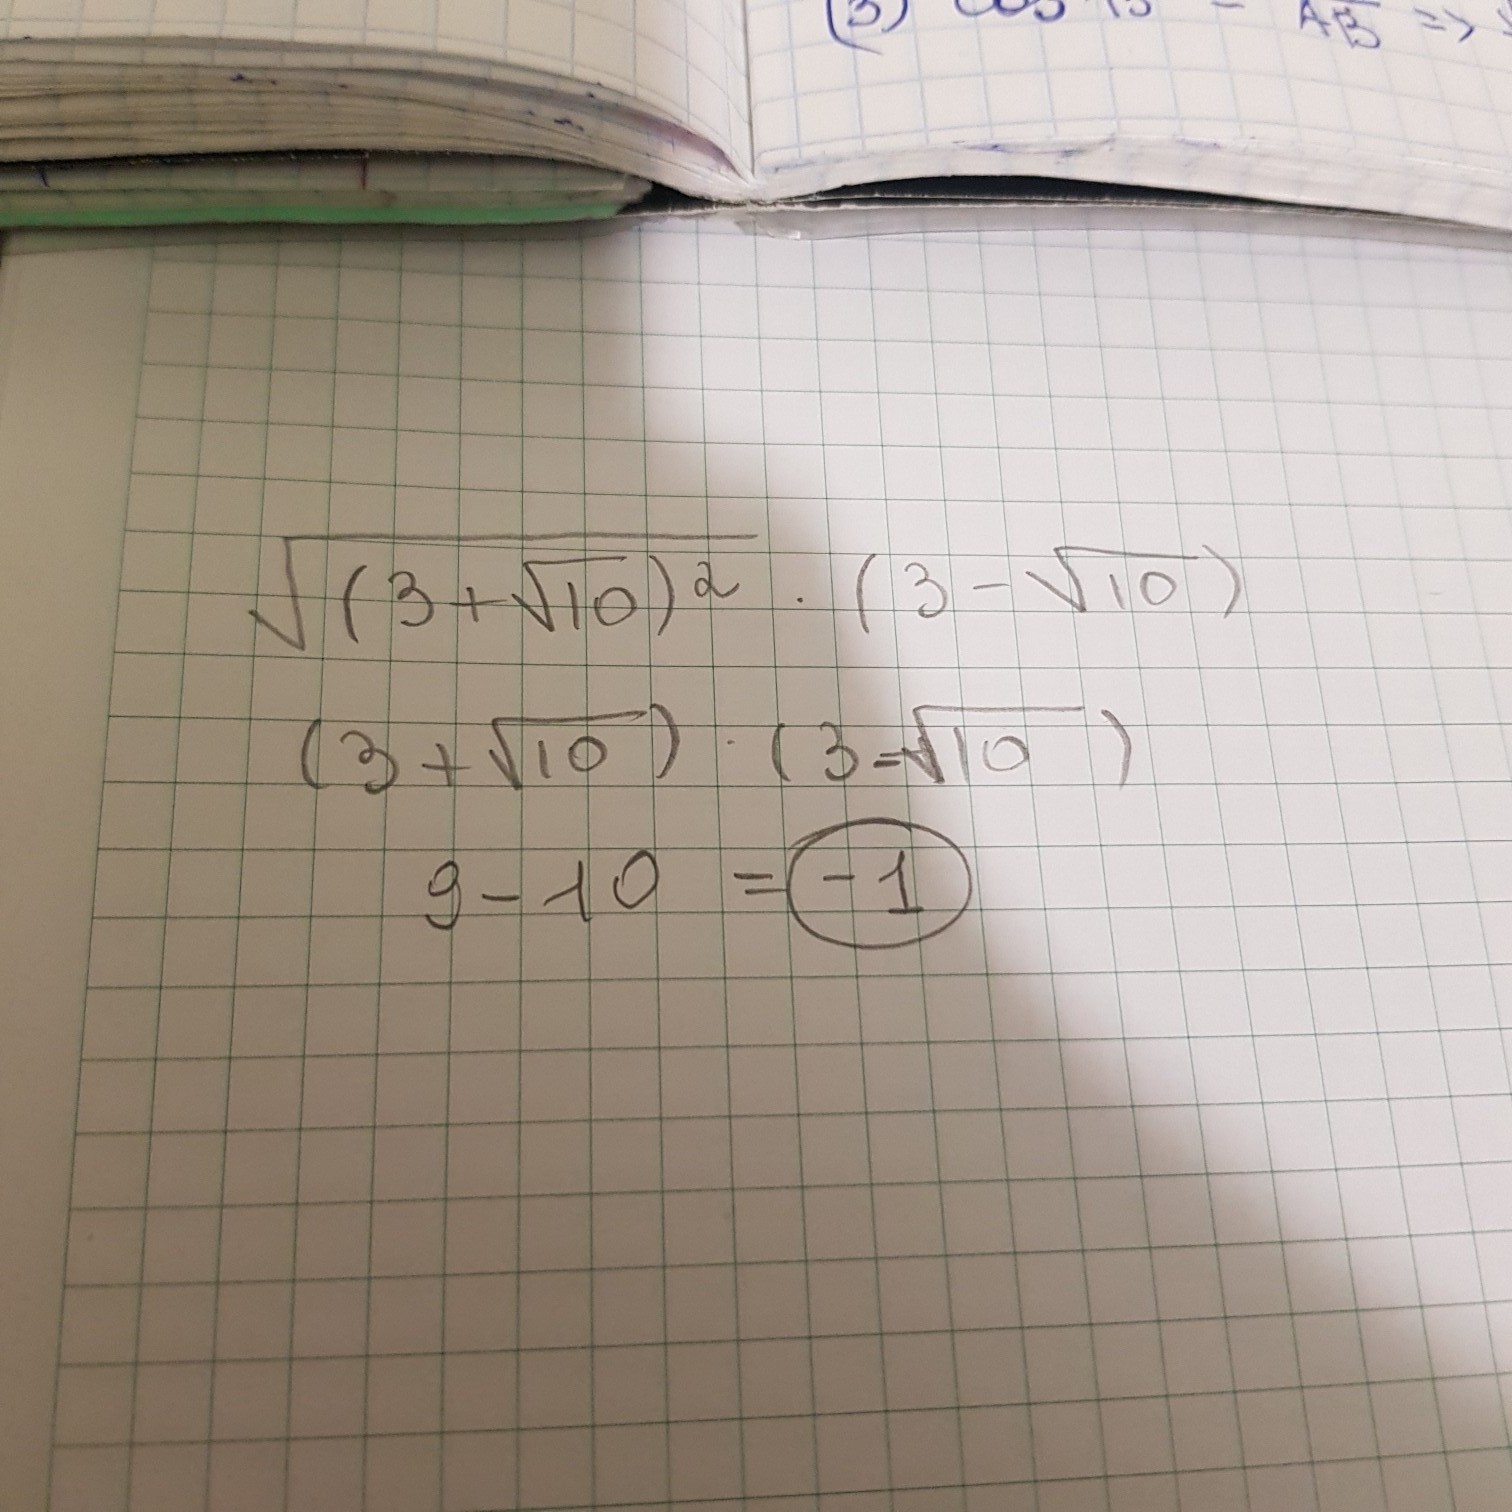 (3)
√(3+√10)² · (3-√10)
(3+√10) · (3-√10)
9-10 = -1